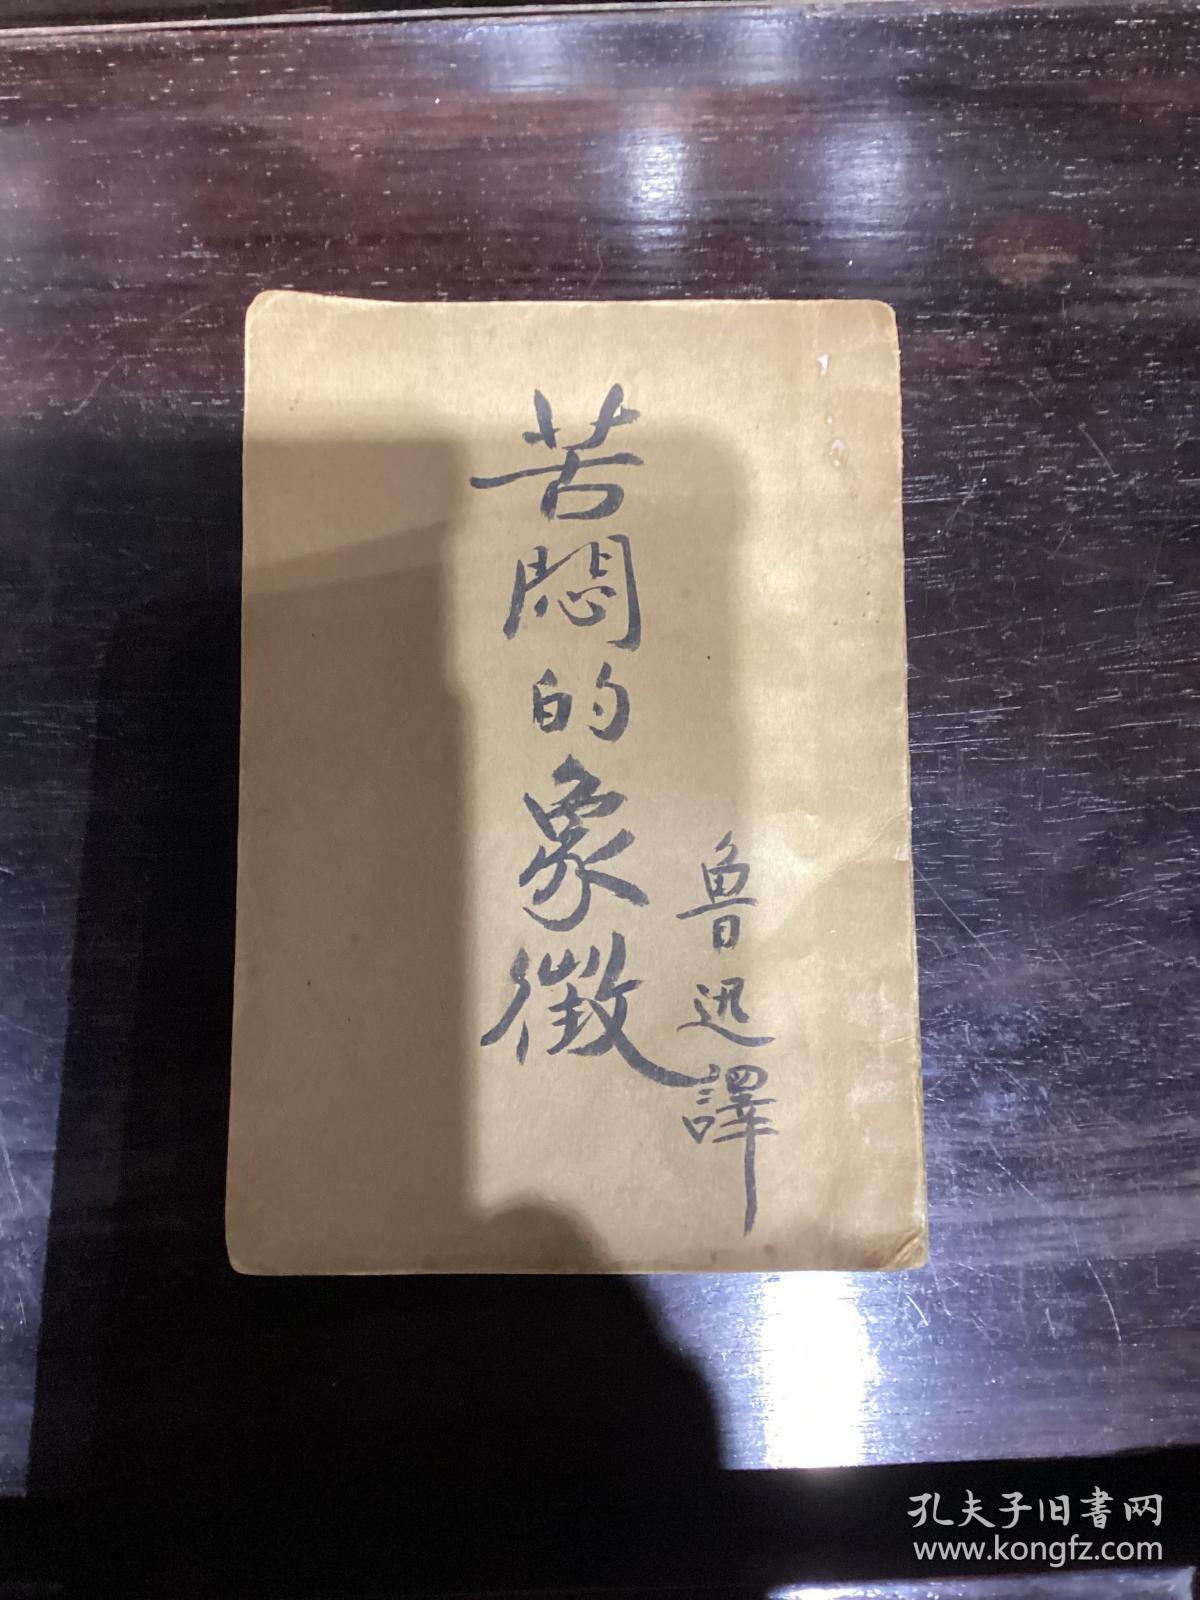 苦悶的象徵
魯迅譯
孔夫子旧書网
www.kongfz.com